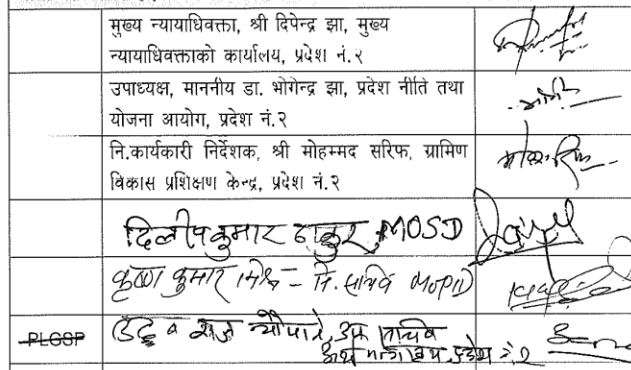 मुख्य न्यायाधिवक्ता, श्री दिपेन्द्र झा, मुख्य
न्यायाधिवक्ताको कार्यालय, प्रदेश नं.२
उपाध्यक्ष, माननीय डा. भोगेन्द्र झा, प्रदेश नीति तथा
योजना आयोग, प्रदेश नं.२
नि.कार्यकारी निर्देशक, श्री मोहम्मद सरिफ, ग्रामिण
विकास प्रशिक्षण केन्द्र, प्रदेश नं.२
दिलीपकुमार ठाकुर, MOSD
कृष्ण कुमार मिश्र - नि. सचिव MOPID
PLGSP
राज न्यौपाने, उप सचिव
अर्थ मन्त्रालय, प्रदेश नं. २